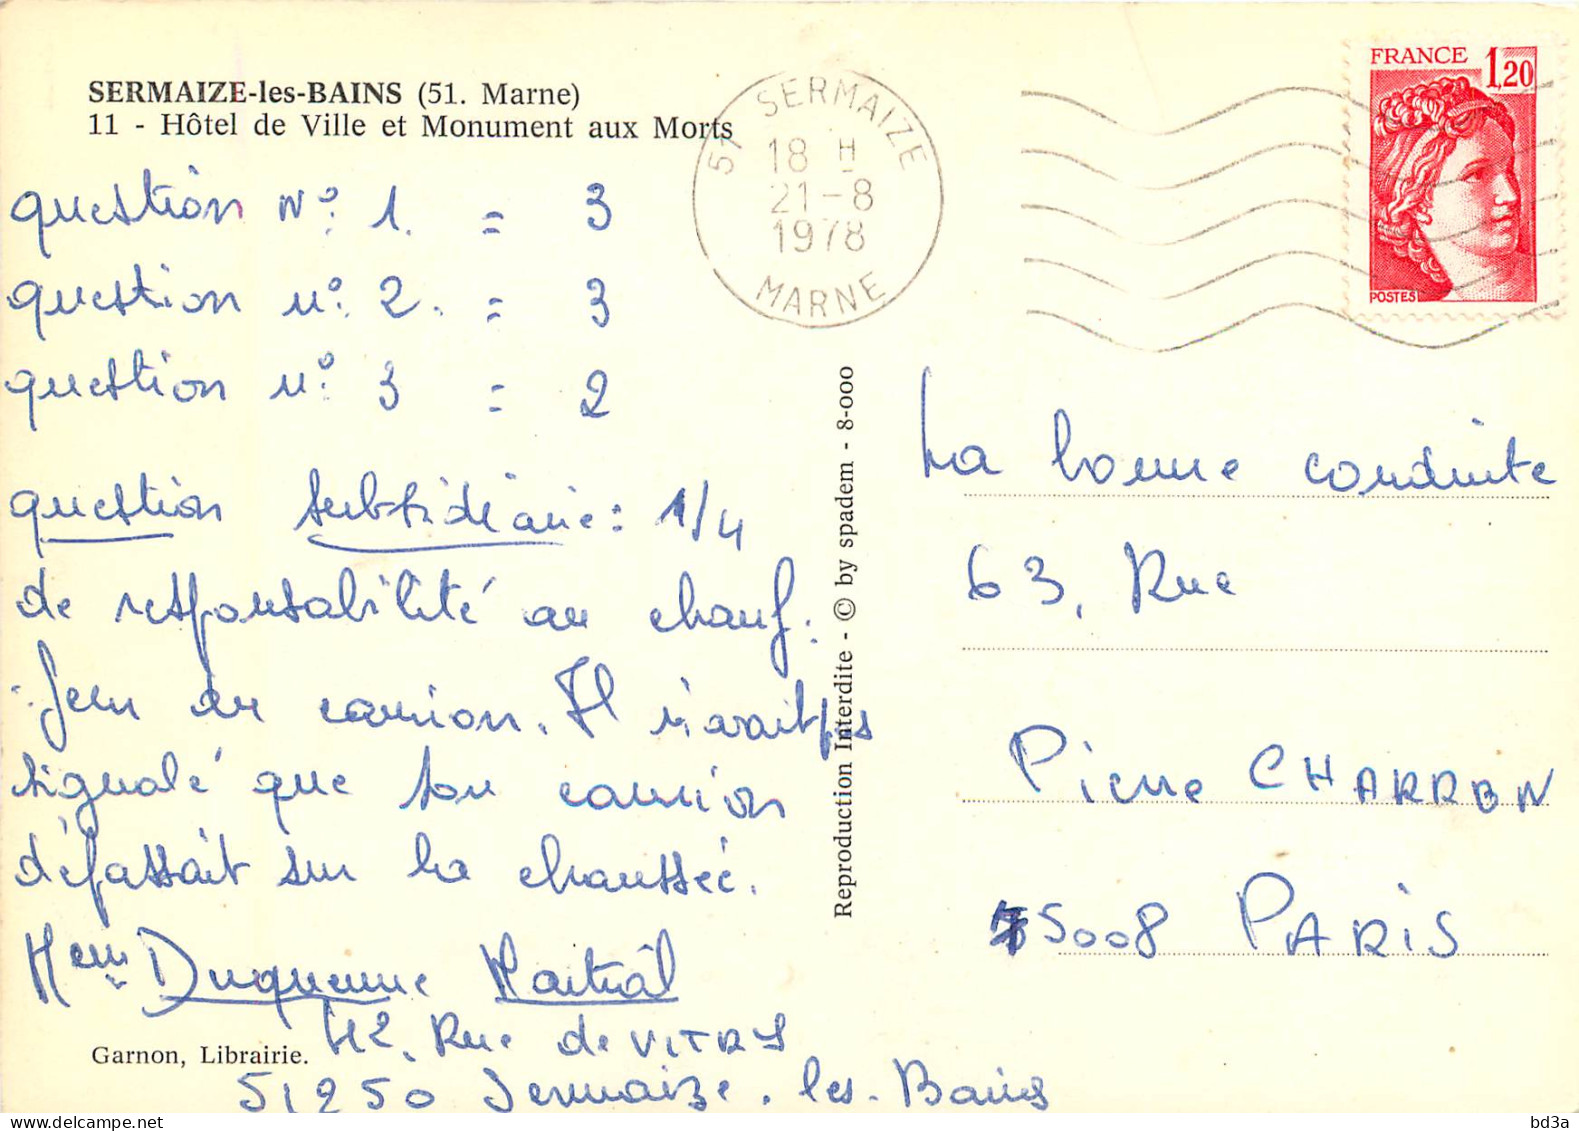 SERMAIZE-les-BAINS (51. Marne)
11 - Hôtel de Ville et Monument aux Morts
question N°: 1. = 3
question n°: 2. = 3
question n°: 3 = 2
question subsidiaire: 1/4
de responsabilité au chauf.
-feur du camion. Il n'avait pas
signalé que son camion
dépassait sur la chaussée.
Duquenne Martial
42, Rue de VITRY
51250 Sermaize-les-Bains
Garnon, Librairie.
Reproduction Interdite - © by spadem - 8-000
SERMAIZE
18 H
21-8
1978
MARNE
FRANCE 1,20
POSTES
La bonne conduite
63, Rue
Pierre CHARRON
75008 PARIS
bd3a